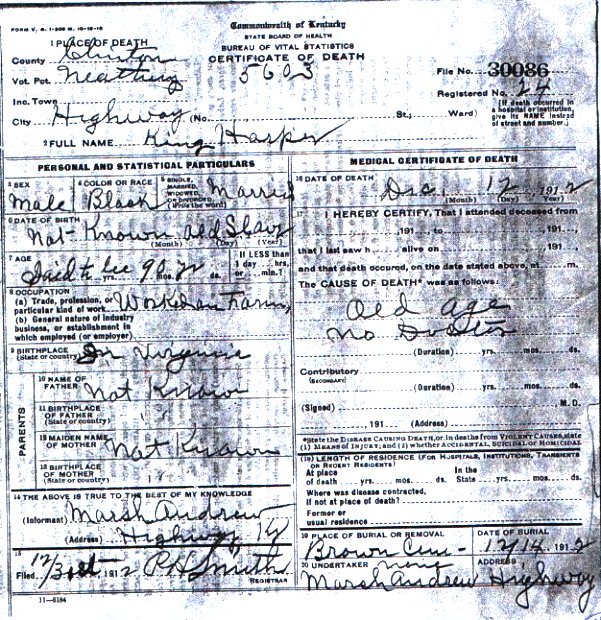 FORM V. S. 1-
Commonwealth of Kentucky
STATE BOARD OF HEALTH
BUREAU OF VITAL STATISTICS
CERTIFICATE OF DEATH
1 PLACE OF DEATH
County Clinton
Vot. Pct.
5603
File No. 30086
Inc. Town
Registered No. 24
City Highway (No. St.; Ward)
(If death occurred in a hospital or institution, give its NAME instead of street and number.)
2 FULL NAME King Harper
PERSONAL AND STATISTICAL PARTICULARS
3 SEX Male
4 COLOR OR RACE Black
5 SINGLE, MARRIED, WIDOWED OR DIVORCED (Write the word) Married
6 DATE OF BIRTH
Not Known old Slave
(Month) (Day) (Year)
7 AGE
Said to be 90 yrs. mos. ds.
If LESS than 1 day hrs. or min.?
8 OCCUPATION
(a) Trade, profession, or particular kind of work Worked on Farm
(b) General nature of industry business, or establishment in which employed (or employer)
9 BIRTHPLACE
(State or country) In Virginia
PARENTS
10 NAME OF FATHER Not Know
11 BIRTHPLACE OF FATHER (State or country) " "
12 MAIDEN NAME OF MOTHER Not Known
13 BIRTHPLACE OF MOTHER (State or country) " "
14 THE ABOVE IS TRUE TO THE BEST OF MY KNOWLEDGE
(Informant) Marsh Andrew
(Address) Highway Ky
15
Filed 12/31st, 1912 P H Smith
REGISTRAR
11-6184
MEDICAL CERTIFICATE OF DEATH
16 DATE OF DEATH
Dec. 12 1912
(Month) (Day) (Year)
17 I HEREBY CERTIFY, That I attended deceased from
, 191 to , 191 ,
that I last saw h alive on , 191 ,
and that death occured, on the date stated above, at m.
The CAUSE OF DEATH* was as follows:
Old age
No Doctor
(Duration) yrs. mos. ds.
Contributory
(SECONDARY)
(Duration) yrs. mos. ds.
(Signed) M.D.
, 191 (Address)
*State the DISEASE CAUSING DEATH, or, in deaths from VIOLENT CAUSES, state (1) MEANS OF INJURY; and (2) whether ACCIDENTAL, SUICIDAL or HOMICIDAL
(18) LENGTH OF RESIDENCE (FOR HOSPITALS, INSTITUTIONS, TRANSIENTS OR RECENT RESIDENTS)
At place of death yrs. mos. ds. In the State yrs. mos. ds.
Where was disease contracted, if not at place of death?
Former or usual residence
19 PLACE OF BURIAL OR REMOVAL
Brown Cem -
DATE OF BURIAL
12/14 1912
20 UNDERTAKER none
ADDRESS
Marsh Andrew Highway